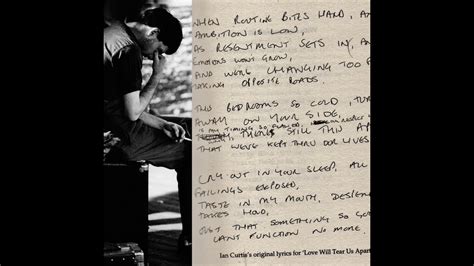 WHEN ROUTINE BITES HARD, AN
AMBITION IS LOW,
AS RESENTMENT SETS IN, AN
EMOTIONS WONT GROW,
AND WERE CHANGING TOO F
TAKING OPPOSITE ROADS.
THIS BEDROOMS SO COLD, TUR
AWAY ON YOUR SIDE,
IS MY TIMING SO FLAWED
THERES STILL THIS AP
THAT WE'VE KEPT THRU OUR LIVES
CRY OUT IN YOUR SLEEP, ALL
FAILINGS EXPOSED,
TASTE IN MY MOUTH, DESPE
TAKES HOLD,
JUST THAT SOMETHING SO GO
CANT FUNCTION NO MORE.
Ian Curtis's original lyrics for 'Love Will Tear Us Apart